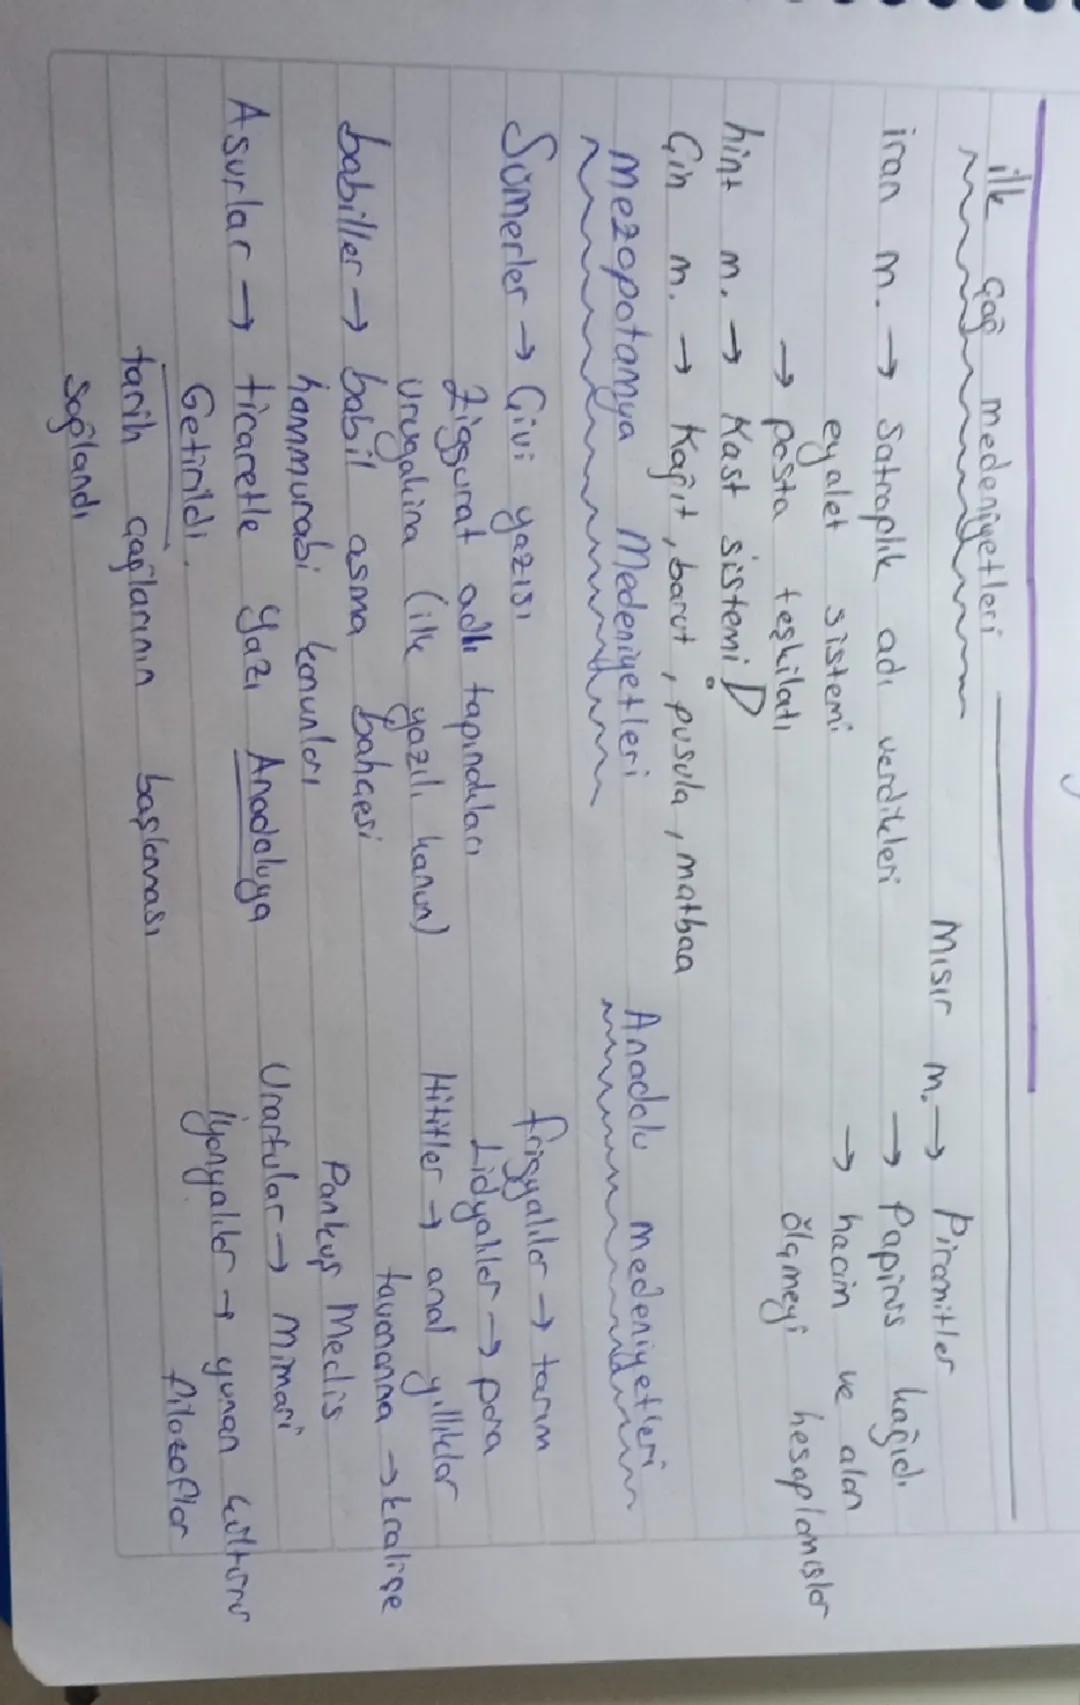 ilk çağ medeniyetleri
iran m. → Satraplık adı verdikleri
eyalet sistemi
→ posta teşkilatı
hint m. → Kast sistemi
Çin m. → Kağıt, barut, pusula, matbaa
Mısır m. → Piramitler
→ Papirus kağıdı
→ hacim ve alan
ölçmeyi hesaplamışlar
mezopotamya Medeniyetleri
Sümerler → Çivi yazısı
Ziggurat adlı tapındıkları
Urugakina (ilk yazılı kanun)
babiller → babil asma bahçesi
hammurabi kanunları
Asurlar → ticaretle yazı Anadoluya
Getirildi.
tarih çağlarının başlaması
sağlandı
Anadolu medeniyetleri
frigyalılar → tarım
Lidyalılar → para
Hititler → anal yıllıklar
tavananna → kraliçe
Pankuş Meclis
Urartular → Mimari
İyonyalılar → yunan kültürü
filozoflar